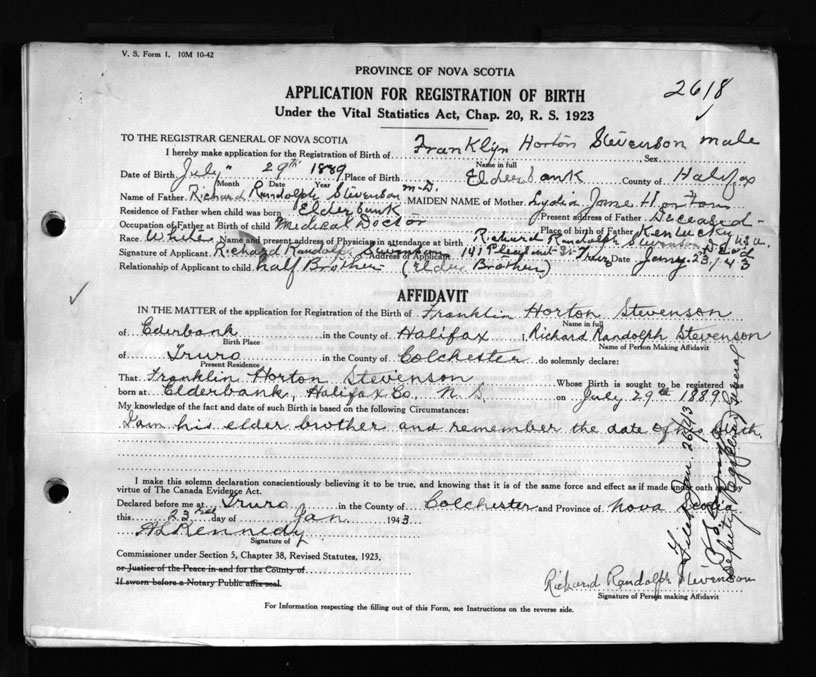 V. S. Form 1. 10M 10-42
PROVINCE OF NOVA SCOTIA
2618
APPLICATION FOR REGISTRATION OF BIRTH
Under the Vital Statistics Act, Chap. 20, R. S. 1923
TO THE REGISTRAR GENERAL OF NOVA SCOTIA
I hereby make application for the Registration of Birth of Franklyn Horton Stevenson Sex male
Name in full
Date of Birth July 29th 1889 Place of Birth Elderbank County of Halifax
Month Date Year
Name of Father Richard Randolph Stevenson M.D. MAIDEN NAME of Mother Lydia Jane Horton
Residence of Father when child was born Elderbank Present address of Father Deceased
Occupation of Father at Birth of child Medical Doctor Place of birth of Father Kentucky U.S.A.
Race White Name and present address of Physician in attendance at birth Richard Randolph Stevenson
Signature of Applicant Richard Randolph Stevenson Address of Applicant 141 Pleasant St Truro Date Jany. 23, 1943
Relationship of Applicant to child half Brother (Elder Brother)
AFFIDAVIT
IN THE MATTER of the application for Registration of the Birth of Franklin Horton Stevenson
Name in full
of Ederbank in the County of Halifax, I, Richard Randolph Stevenson
Birth Place Name of Person Making Affidavit
of Truro in the County of Colchester do solemnly declare:
Present Residence
That Franklin Horton Stevenson Whose Birth is sought to be registered was
born at Elderbank, Halifax Co. N. S. on July 29th 1889
My knowledge of the fact and date of such Birth is based on the following Circumstances:
I am his elder brother and remember the date of his birth.
I make this solemn declaration conscientiously believing it to be true, and knowing that it is of the same force and effect as if made under oath and by
virtue of The Canada Evidence Act.
Declared before me at Truro in the County of Colchester and Province of Nova Scotia
this 23rd day of Jan 1943
Kennedy
Signature of
Commissioner under Section 5, Chapter 38, Revised Statutes, 1923,
or Justice of the Peace in and for the County of
If sworn before a Notary Public affix seal.
Richard Randolph Stevenson
Signature of Person making Affidavit
For Information respecting the filling out of this Form, see Instructions on the reverse side.
Filed Jan. 26/43
Deputy Registrar General